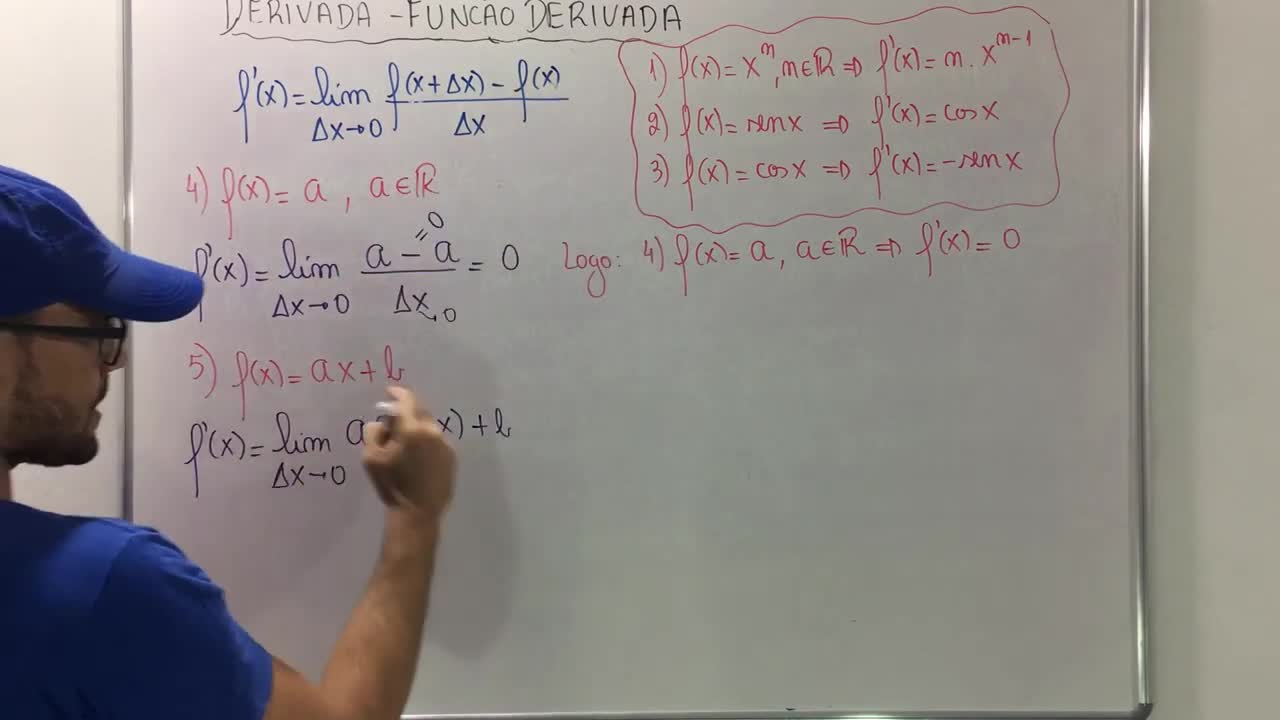 DERIVADA - FUNCAO DERIVADA
f'(x) = lim f(x + Δx) - f(x)
Δx→0 Δx
1) f(x) = x^m, m∈ℝ ⇒ f'(x) = m . x^(m-1)
2) f(x) = sen x ⇒ f'(x) = cos x
3) f(x) = cos x ⇒ f'(x) = - sen x
4) f(x) = a , a∈ℝ
f'(x) = lim a - a = 0 = 0
Δx→0 Δx→0
Logo: 4) f(x) = a, a∈ℝ ⇒ f'(x) = 0
5) f(x) = ax + b
f'(x) = lim a x) + b
Δx→0